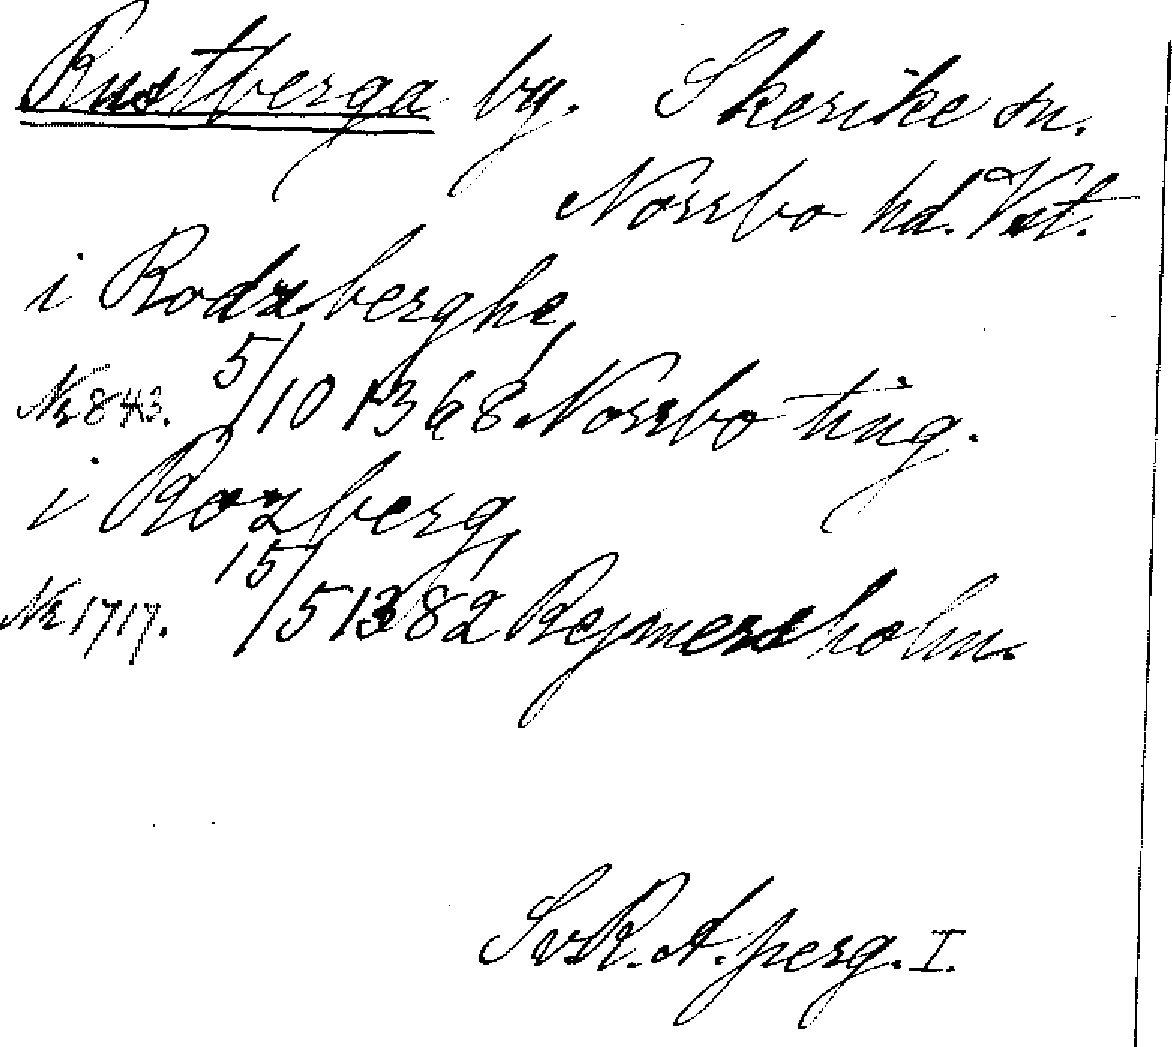 Rustberga by. Skerike sn.
Norrbo hd. Vst.
i Rodzberghe
Nr 843. 5/10 1368 Norrbo ting.
i Rozberg
Nr 1717. 15/5 1382 Rejmersholm.
SvR. A. perg. I.